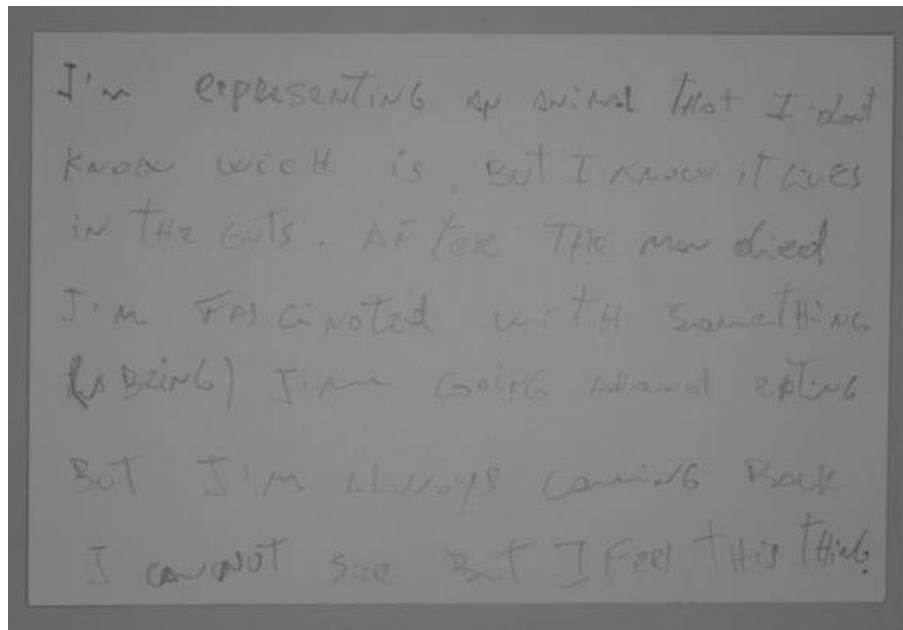 I'm erpresenting an animal that I don't
know wich is. But I know it lives
in the guts. After the man died
I'm fascinated with something
(a being) I'm going around eating
But I'm always coming back
I cannot see But I feel this thing.